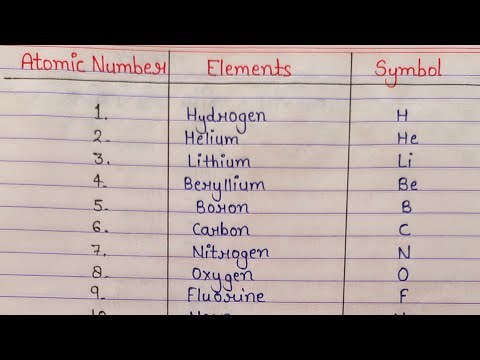 Atomic Number Elements Symbol
1. Hydrogen H
2. Helium He
3. Lithium Li
4. Beryllium Be
5. Boron B
6. Carbon C
7. Nitrogen N
8. Oxygen O
9. Fluorine F